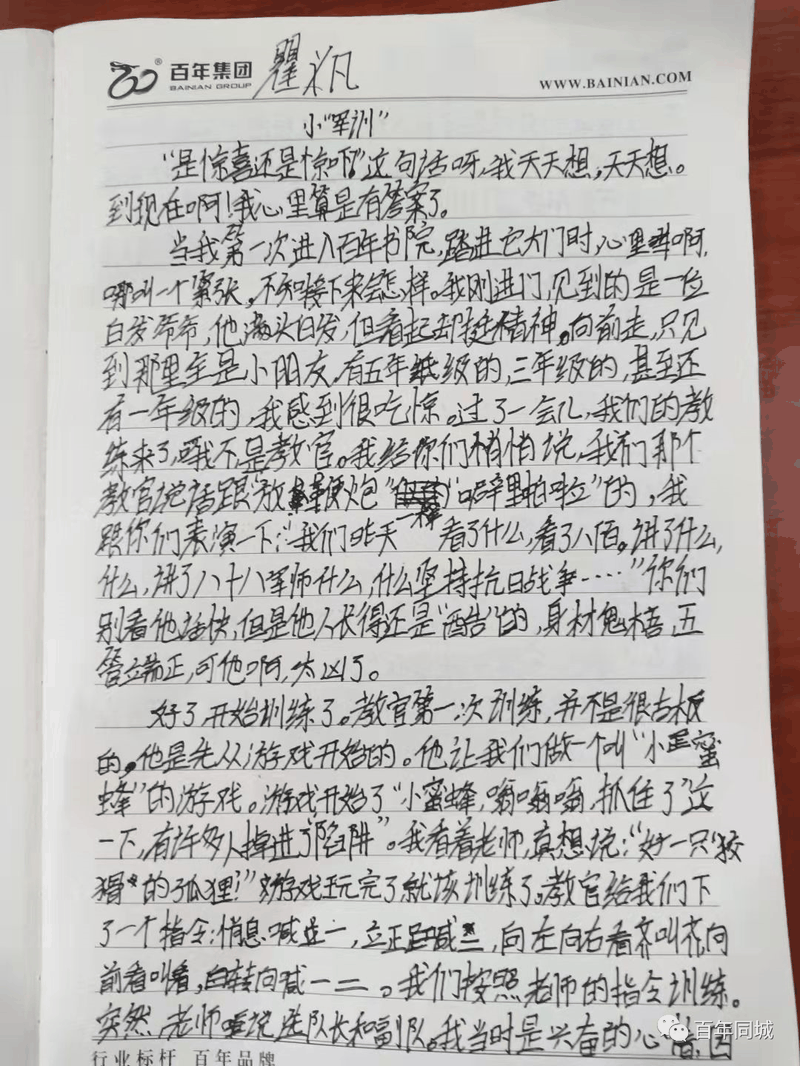 百年集团
BAINIAN GROUP
瞿
WWW.BAINIAN.COM
小"军训"
"是惊喜还是惊吓"这句话呀,我天天想,天天想。
到现在啊!我心里算是有答案了。
当我第一次进入百年书院,踏进它大门时,心里啊,
哪叫一个紧张,不知接下来会怎样。我刚进门,见到的是一位
白发爷爷,他满头白发,但看起却挺精神。向前走,只见
到那里全是小朋友。有五年级的,三年级的,甚至还
有一年级的,我感到很吃惊。过了一会儿,我们的教
练来了,哦不,是教官。我给你们悄悄说,我们那个
教官说话跟"放鞭炮"一样"噼里啪啦"的,我
跟你们表演一下:"我们昨天看了什么,看了八佰。讲了什么,
什么,讲了八十八军师什么,什么坚持抗日战争……"你们
别看他话快,但是他人长得还是"酷"的,身材魁梧,五
官端正,可他啊,太凶了。
好了,开始训练了。教官第一次训练,并不是很古板
的。他是先从游戏开始的。他让我们做一个叫"小蜜
蜂"的游戏。游戏开始了"小蜜蜂,嗡嗡嗡,抓住了"这
一下,有许多人掉进了"陷阱"。我看着老师,真想说:"好一只'狡
猾'的狐狸!"游戏玩完了就该训练了。教官给我们下
了一个指令:稍息喊一,立正喊二,向左向右看齐叫齐,向
前看叫看,转向喊一二。我们按照老师的指令训练。
突然,老师说选队长和副队。我当时是兴奋的心情,因
行业标杆 百年品牌
百年同城